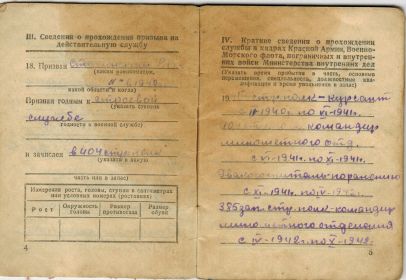 III. Сведения о прохождении призыва на
действительную службу
18. Призван
(каким военкоматом,
какой области и когда)
Признан годным к строевой
службе
(годность к военной службе)
и зачислен в 404 стр. полк
(указать в какую
часть или в запас)
Измерения роста, головы, ступни в сантиметрах
или условных номерах (ростовках)
Рост
Окружность головы
Размер противогаза
Размер обуви
4
IV. Краткие сведения о прохождении
службы в кадрах Красной Армии, Военно-
Морского флота, пограничных и внутрен-
них войск Министерства внутренних дел
(Указать время прибытия в часть, основные
перемещения, специальность, должностные ква-
лификации и время увольнения в запас)
19. стр. полк - курсант
1940г. по VI-1941г.
командир
минометного отд.
с VI-1941г. по XI-1941г.
по ранению
с XI-1941г. по IV-1942г.
385 зап. стр. полк - командир
минометного отделения
с IV-1942г. по X-1942г.
5